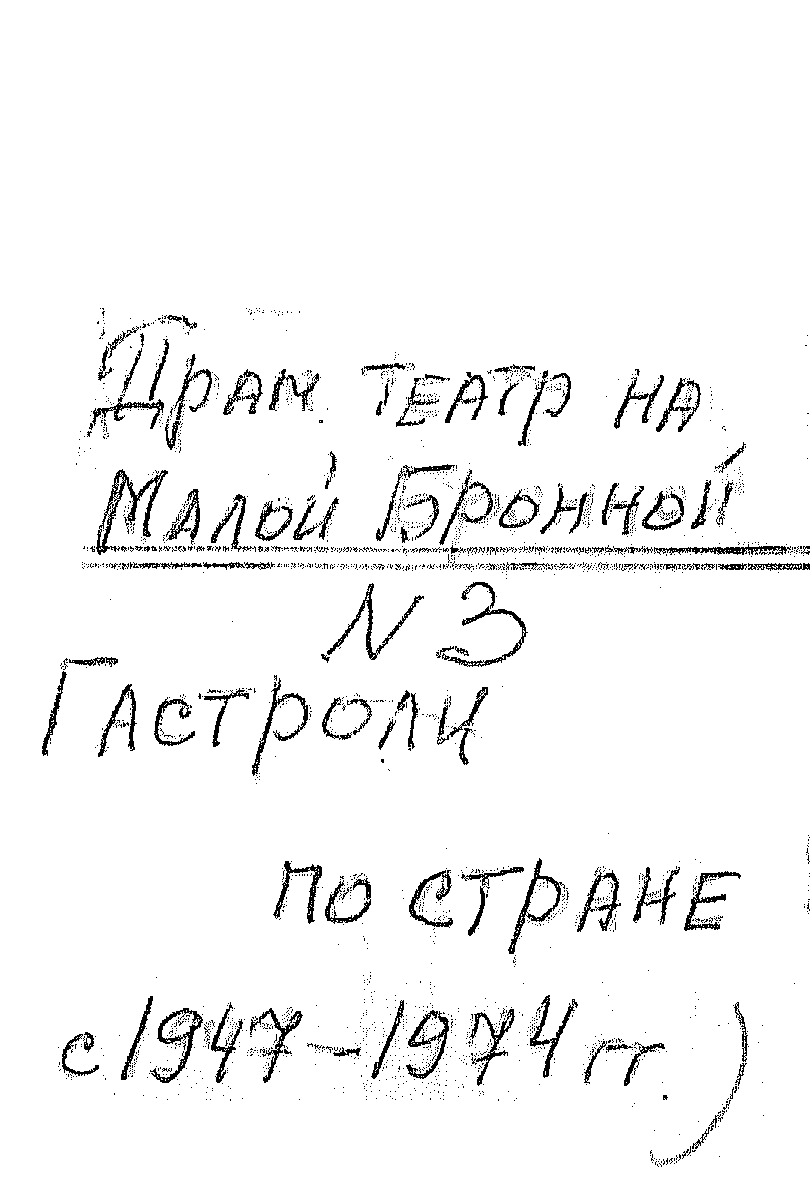 Драм. театр на
Малой Бронной
N 3
Гастроли
по стране
с 1947-1974 гг.)